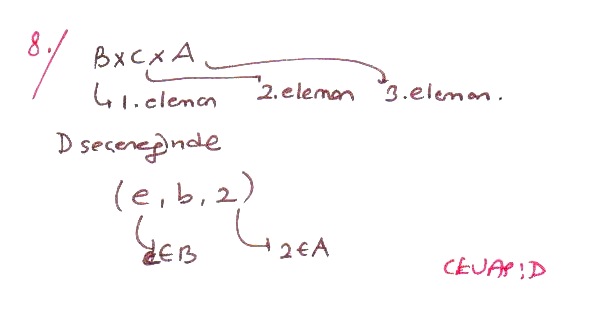 8./ BxCxA
1.eleman 2.eleman 3.eleman.
D seçeneğinde
(e, b, 2)
e∈B 2∈A
CEVAP:D